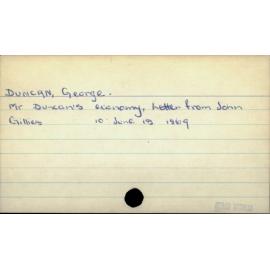 DUNCAN, George.
Mr Duncan's economy, Letter from John
Gillies 10 June 19 1969